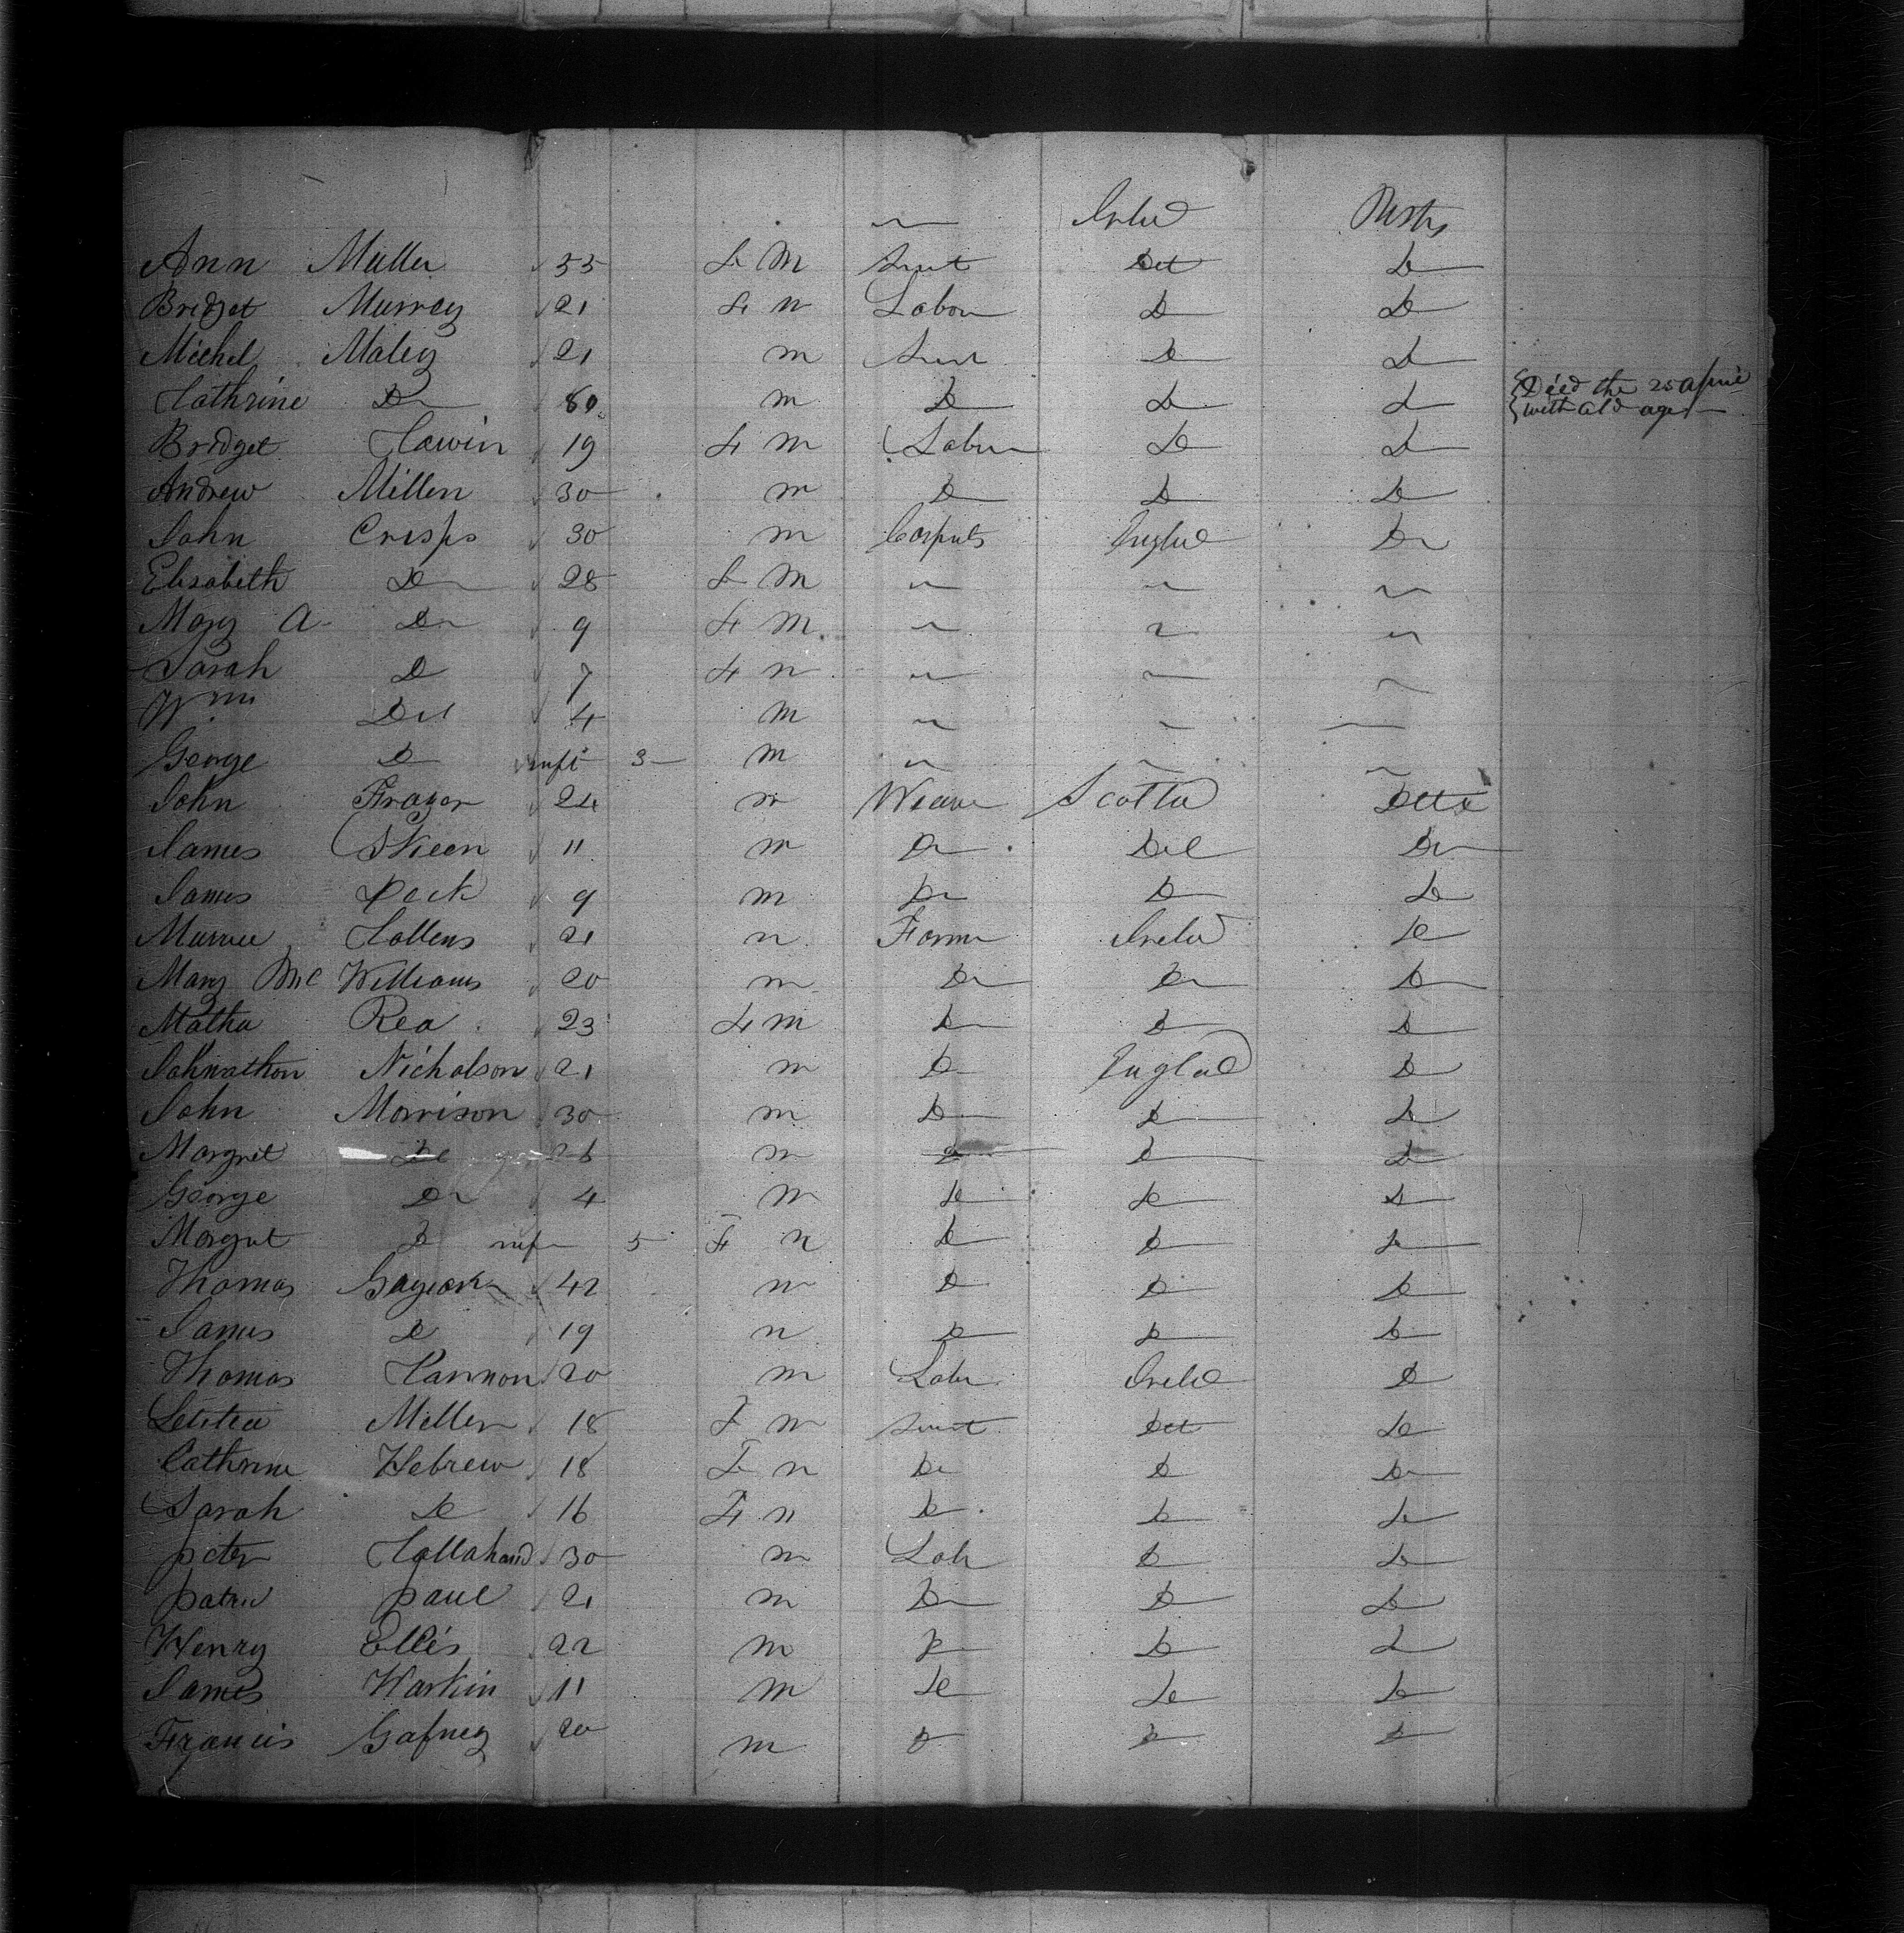 Irelad
Ann Muller 55 F m Servt Dit D
Bridget Murray 21 F m Labou D D
Michel Maley 21 m Servt D D
Cathrine D 80 m D D D {Died the 25 april {with old age
Bridget Cawin 19 F m Labur D D
Andrew Millen 30 m D D D
John Crisps 30 m Carpnts Inglad D
Elisabeth D 28 F m " " "
Mary A D 9 F m " " "
Sarah D 7 F m " " "
Wm Dit 4 m " " "
George D inft 3 m " " "
John Frazer 24 m Weave Scotla Ditto
James Skeen 11 m D Dit D
James Peck 9 m D D D
Collens 21 m Farm Irelad D
Mary Mc Williams 20 m D D D
Matha Rea 23 F m D D D
Johnathon Nicholson 21 m D Inglad D
John Morrison 30 m D D D
Margret Do 26 m D D D
George D 4 m D D D
Margrut D inf 5 F m D D D
Thomas 42 m D D D
James D 19 m D D D
Thomas Cannon 20 m Labr Irelad D
Letitea Millen 18 F m Servt Dit D
Cathrine Hebrew 18 F m D D D
Sarah D 16 F m D D D
peter Callahand 30 m Lab D D
patric paul 21 m D D D
Henry Ellis 22 m D D D
James Harkin 11 m D D D
Francis Gafney 20 m D D D